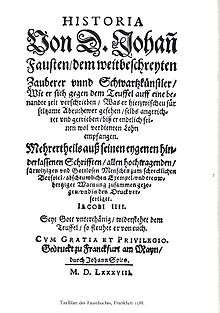 HISTORIA
Von D. Johañ
Fausten/dem weitbeschreyten
Zauberer vnnd Schwartzkünstler/
Wie er sich gegen dem Teuffel auff eine be-
nandte zeit verschrieben/Was er hierzwischen für
seltzame Abenthewr gesehen/selbs angerich-
tet vnd getrieben/biß er endtlich sei-
nen wol verdienten Lohn
empfangen.
Mehrertheils auß seinen eygenen hin-
derlassenen Schrifften/allen hochtragenden/
fürwitzigen vnd Gottlosen Menschen zum schrecklichen
Beyspiel/abschewlichen Exempel/vnd trew-
hertziger Warnung zusammen gezo-
gen/vnd in den Druck ver-
fertiget.
IACOBI IIII.
Seyt Gott vnderthänig/widerstehet dem
Teuffel/so fleuhet er von euch.
CVM GRATIA ET PRIVILEGIO.
Gedruckt zu Franckfurt am Mayn/
durch Johann Spies.
M. D. LXXXVIII.
Titelblatt des Faustbuches, Frankfurt 1588.